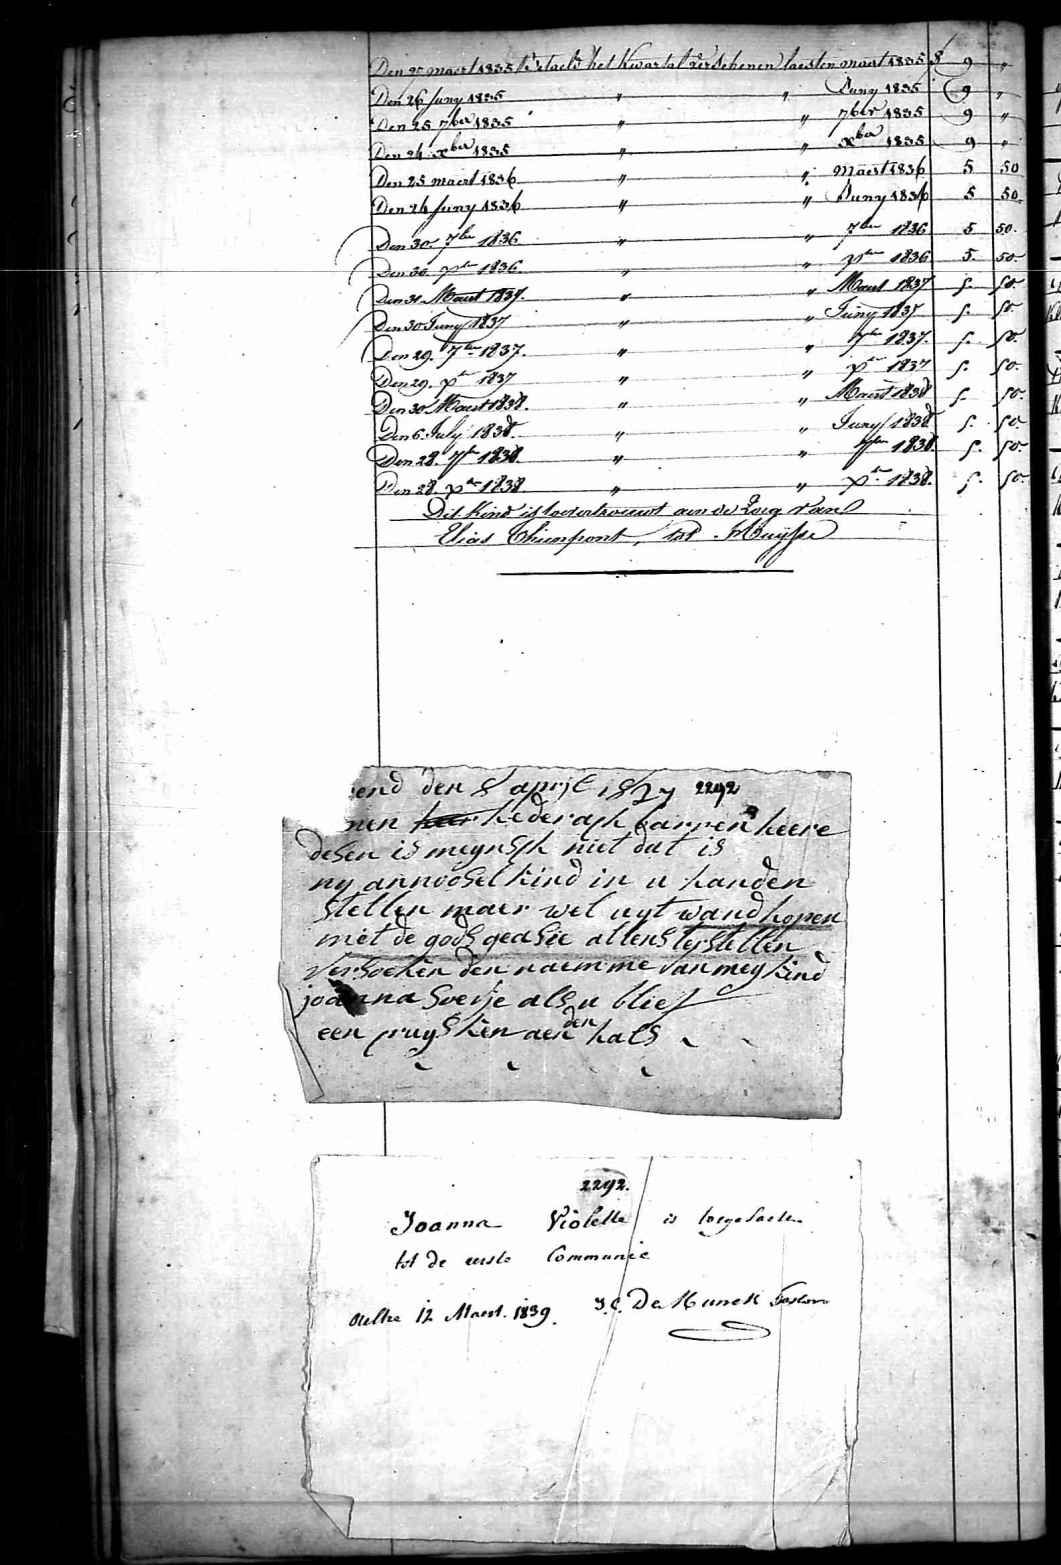 Den 25 maert 1835 betaeld het kwartal verschenen laesten maert 1835 f 9 "
Den 26 Juny 1835 " " Juny 1835 9 "
Den 25 7ber 1835 " " 7ber 1835 9 "
Den 24 xber 1835 " " xber 1835 9 "
Den 25 maert 1836 " " maert 1836 5 50
Den 24 Juny 1836 " " Juny 1836 5 50
Den 30 7ber 1836 " " 7ber 1836 5 50
Den 30 xber 1836 " " xber 1836 5 50
Den 31 Maert 1837 " " Maert 1837 5 50
Den 30 Juny 1837 " " Juny 1837 5 50
Den 29. 7ber 1837. " " 7ber 1837. 5. 50.
Den 29. xber 1837 " " xber 1837 5. 50.
Den 30 Maert 1838. " " Maert 1838 5. 50.
Den 6. July 1838. " " Juny 1838 5. 50.
Den 28. 7ber 1838. " " 7ber 1838. 5. 50.
Den 28. xber 1838. " " xber 1838. 5. 50.
Dit Kind is toevertrouwt aen de Zorg van
Elias Chienpont, tot
end den 8 april 1827 2292
heere
desen is meynsch niet dat is
my annoosel kind in u handen
stellen maer wel uyt wandhopen
met de gods geasie altens te stellen
versoeken den naemme van mey kind
joanna soetje als u blief
een pruysken aen den hals
2292.
Joanna Violette is toegelaeten
tot de eerste Communie
Melke 12 Maert. 1839. J. C. De Munck Pastoor